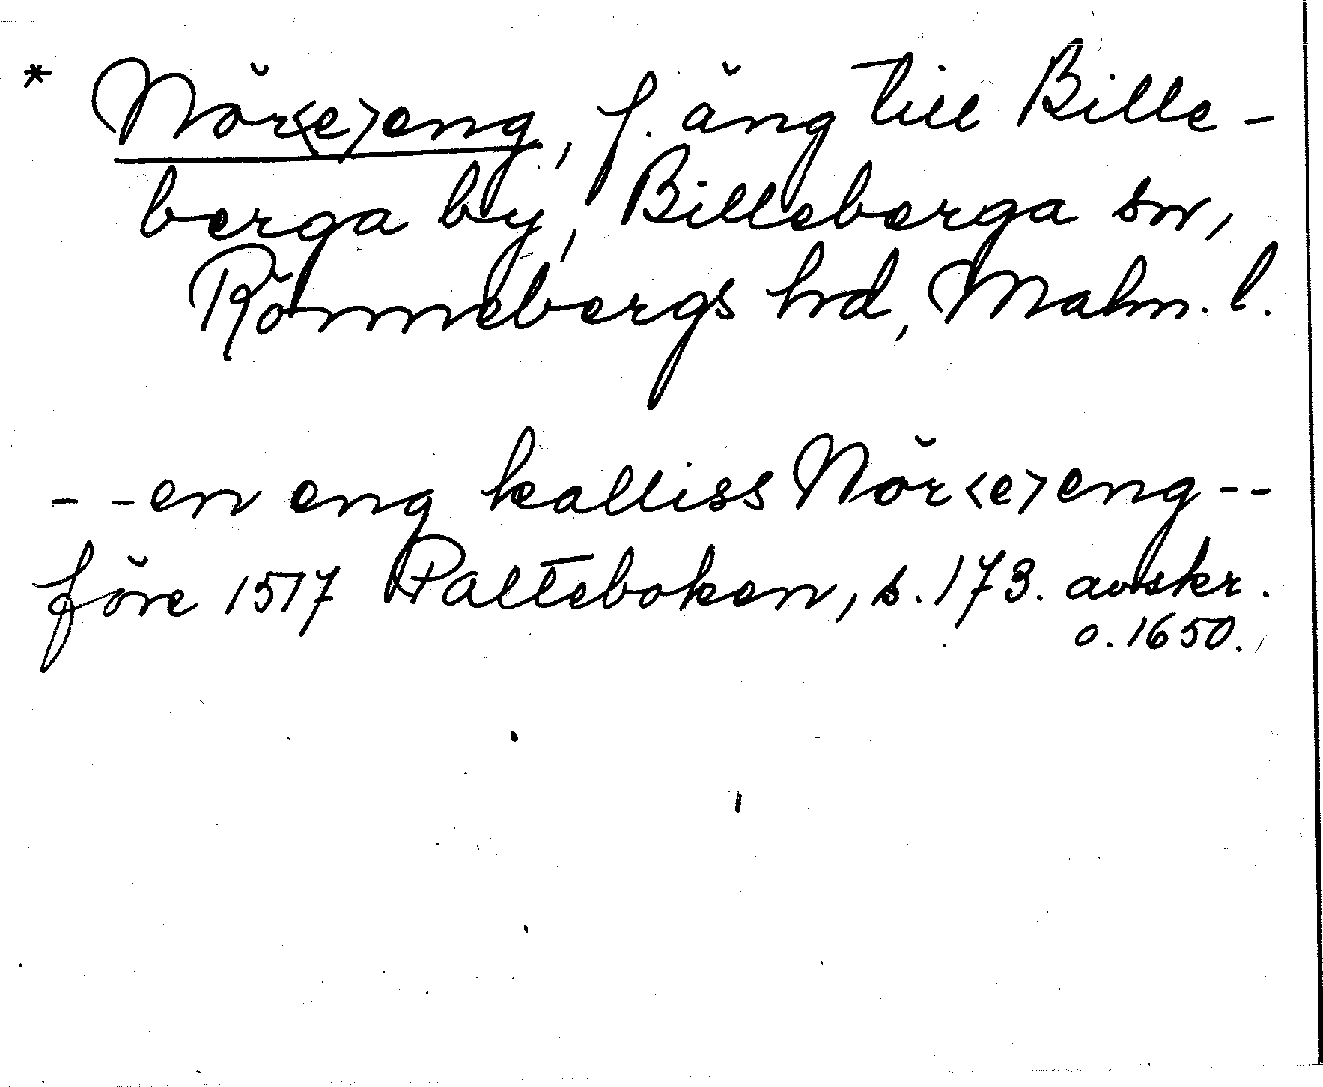 * Nör<e>eng, f. äng till Bille-
berga by, Billeberga sn,
Rönnebergs hd, Malm. l.
--en eng kalliss Nör<e>eng--
före 1517 Palteboken, s. 173. avskr.
o. 1650.